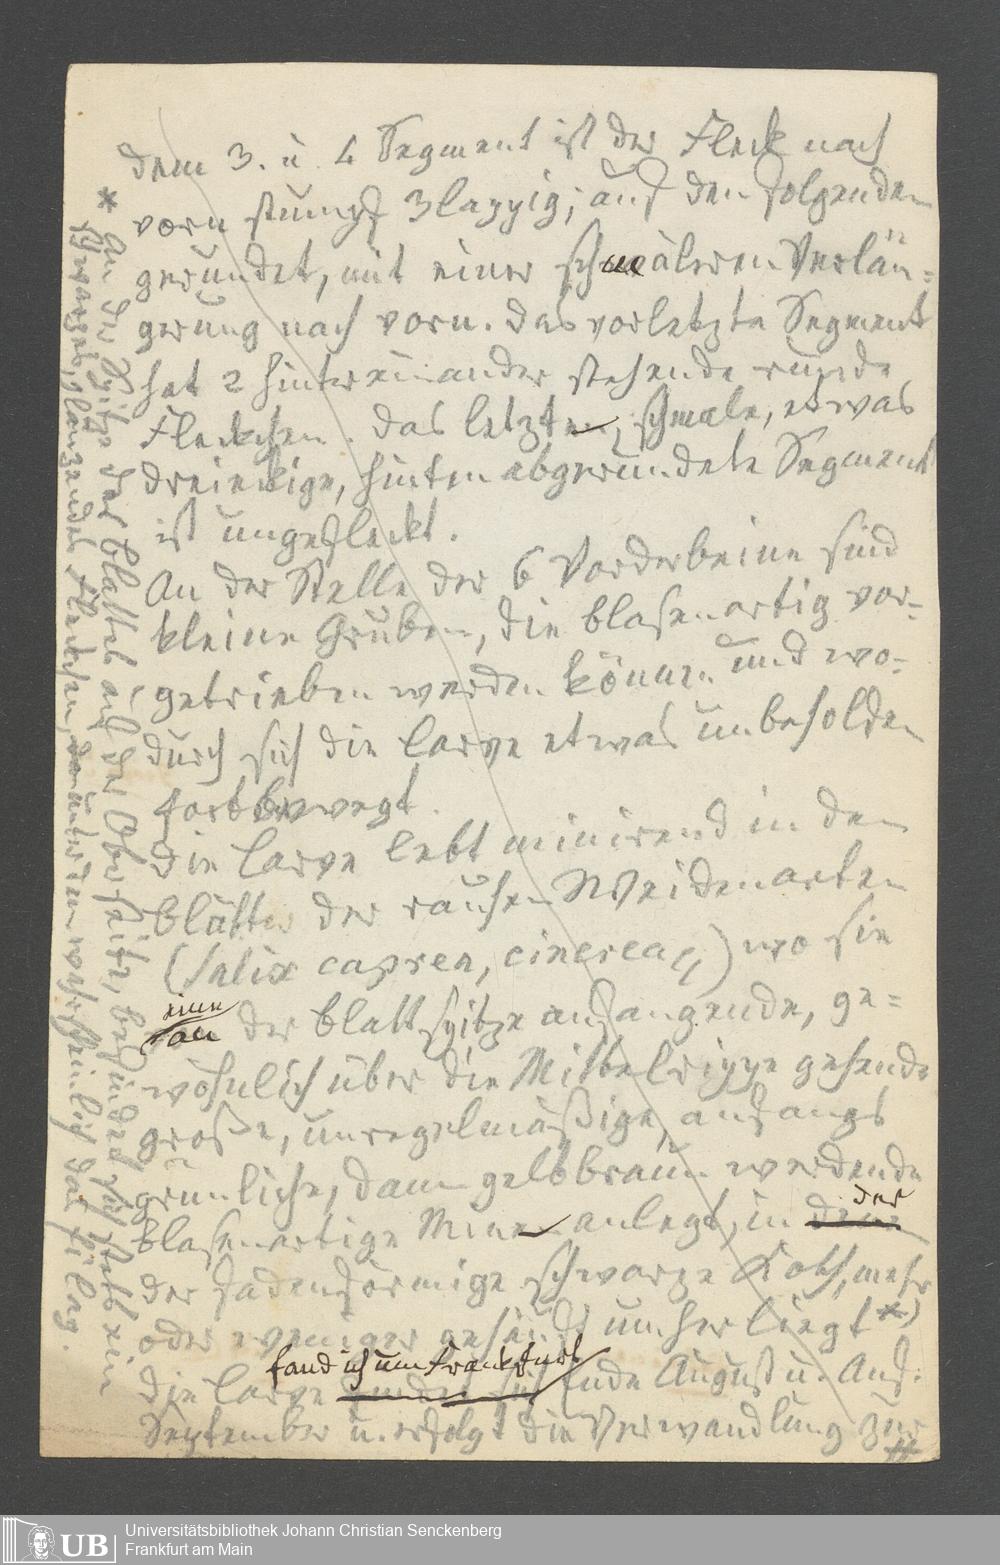 dem 3. u 4 Segment ist der Fleck nach
vorn stumpf 3lappig; auf den folgenden
gerundet, mit einer schmäleren Verlän=
gerung nach vorn. Das vorletzte Segment
hat 2 hintereinander stehende runde
Fleckchen. Das letzte, schmale, etwas
dreieckige, hinten abgerundete Segment
ist ungefleckt.
An der Stelle der 6 Vorderbeine sind
kleine Gruben, die blasenartig vor=
getrieben werden können und wo=
durch sich die Larve etwas unbeholfen
fortbewegt.
Die Larve lebt minirend in den
Blättern der rauhen Weidenarten
(Salix caprea, cinerea) wo sie
eine
an der Blattspitze anfangende, ge=
wöhnlich über die Mittelrippe gehende
große, unregelmäßige, anfangs
grünliche, dann gelbbraun werdende
blasenartige Mine anlegt, in
der
der fadenförmige schwarze Koth, mehr
oder weniger gehäuft umher liegt *)
fand ich um Frankfurt
Die Larve findet sich Ende August u. Anf.
September u. erfolgt die Verwandlung zur
#
* An der Spitze des Blattes auf der Oberseite, befindet sich stets ein
schwarzes, glänzendes Fleckchen, darunter wahrscheinlich das Eilag.
Universitätsbibliothek Johann Christian Senckenberg
Frankfurt am Main
UB